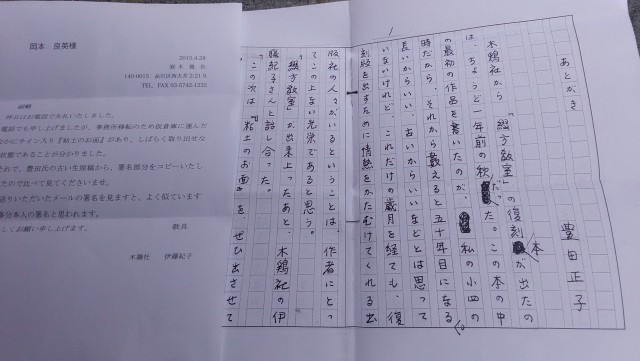 岡本 良英様
2015.4.28
140-0015 品川区西大井2-21-9
TEL, FAX 03-5742-1235
前略
昨日はお電話で失礼いたしました。
電話でも申し上げましたが、事務所移転のため倉庫に運んだ
なかにサイン入り『粘土のお面』があり、しばらく取り出せな
状態であることが分かりました。
それで、豊田氏の古い生原稿から、署名部分をコピーいたし
たので比べて見てくださいませ。
送りいただいたメールの署名を見ますと、よく似ています
多分本人の署名と思われます。
しくお願い申し上げます。
敬具
木鶏社 伊藤紀子
あとがき
豊田正子
木鶏社から『綴方教室』の復刻本が出たの
は、ちょうど一年前の秋だった。この本の中
の最初の作品を書いたのが、私の小四の
時だから、それから数えると五十年目になる。
長いからいい、古いからいいなどとは思って
いないけれど、これだけの歳月を経ても、復
刻版を出すために情熱をかたむけてくれる出
版社の人々がいるということは、作者にとっ
てこの上ない光栄であると思う。
『綴方教室』が出来上ったあと、木鶏社の伊
藤紀子さんと話し合った。
「この次は『粘土のお面』を、ぜひ出させて